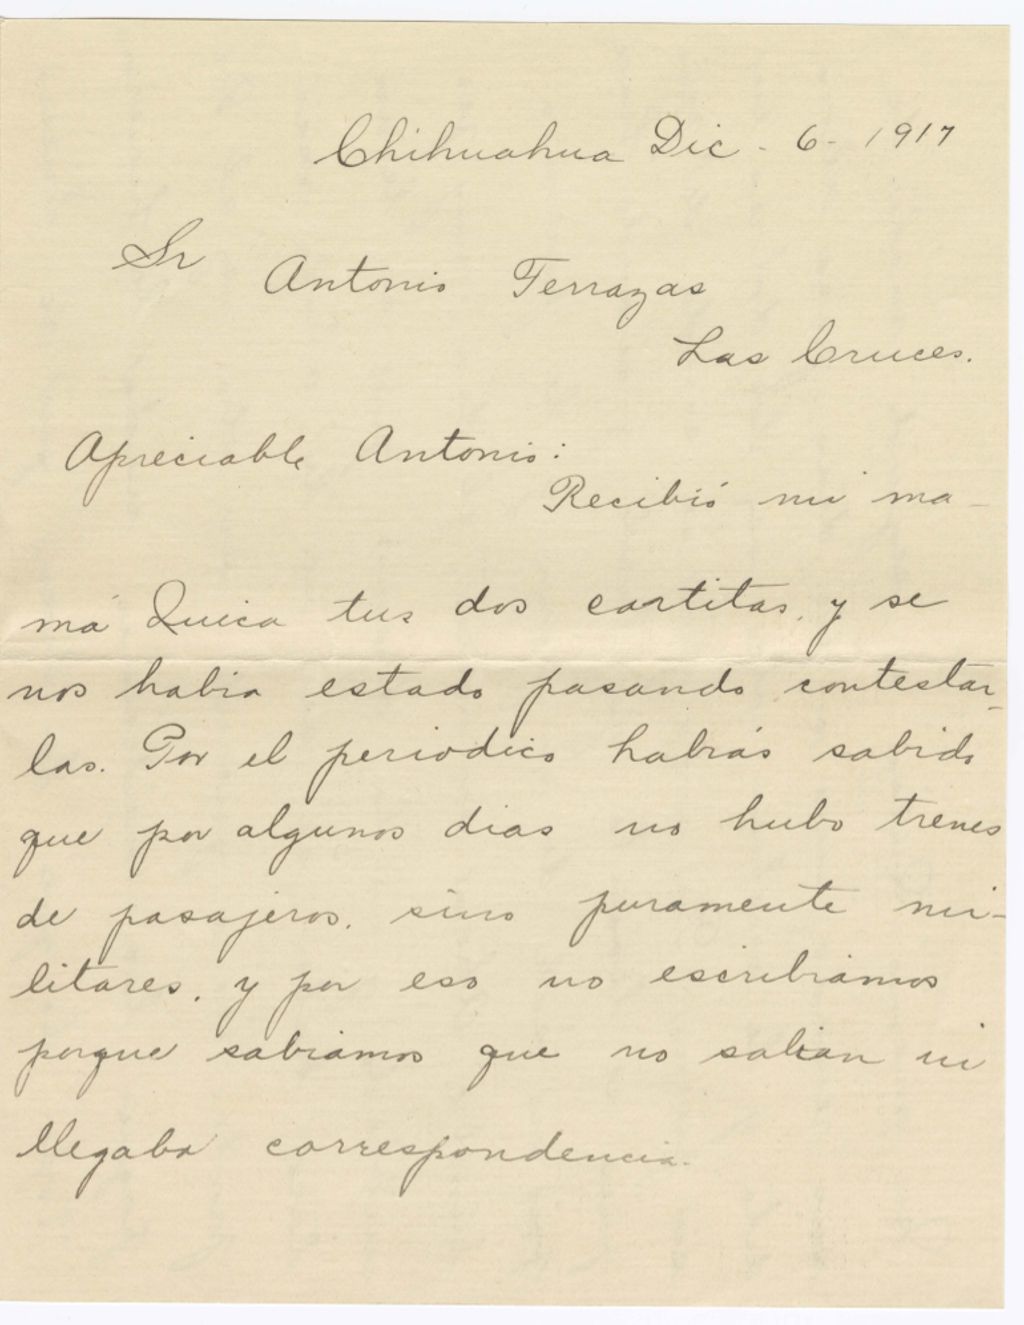 Chihuahua Dic - 6 - 1917
Sr
Antonio Terrazas
Las Cruces.
Apreciable Antonio:
Recibió mi ma-
má Quica tus dos cartitas, y se
nos habia estado pasando contestar-
las. Por el periodico habrás sabido
que por algunos dias no hubo trenes
de pasajeros, sino puramente mi-
litares, y por eso no escribiamos
porque sabiamos que no salian ni
llegaba correspondencia.